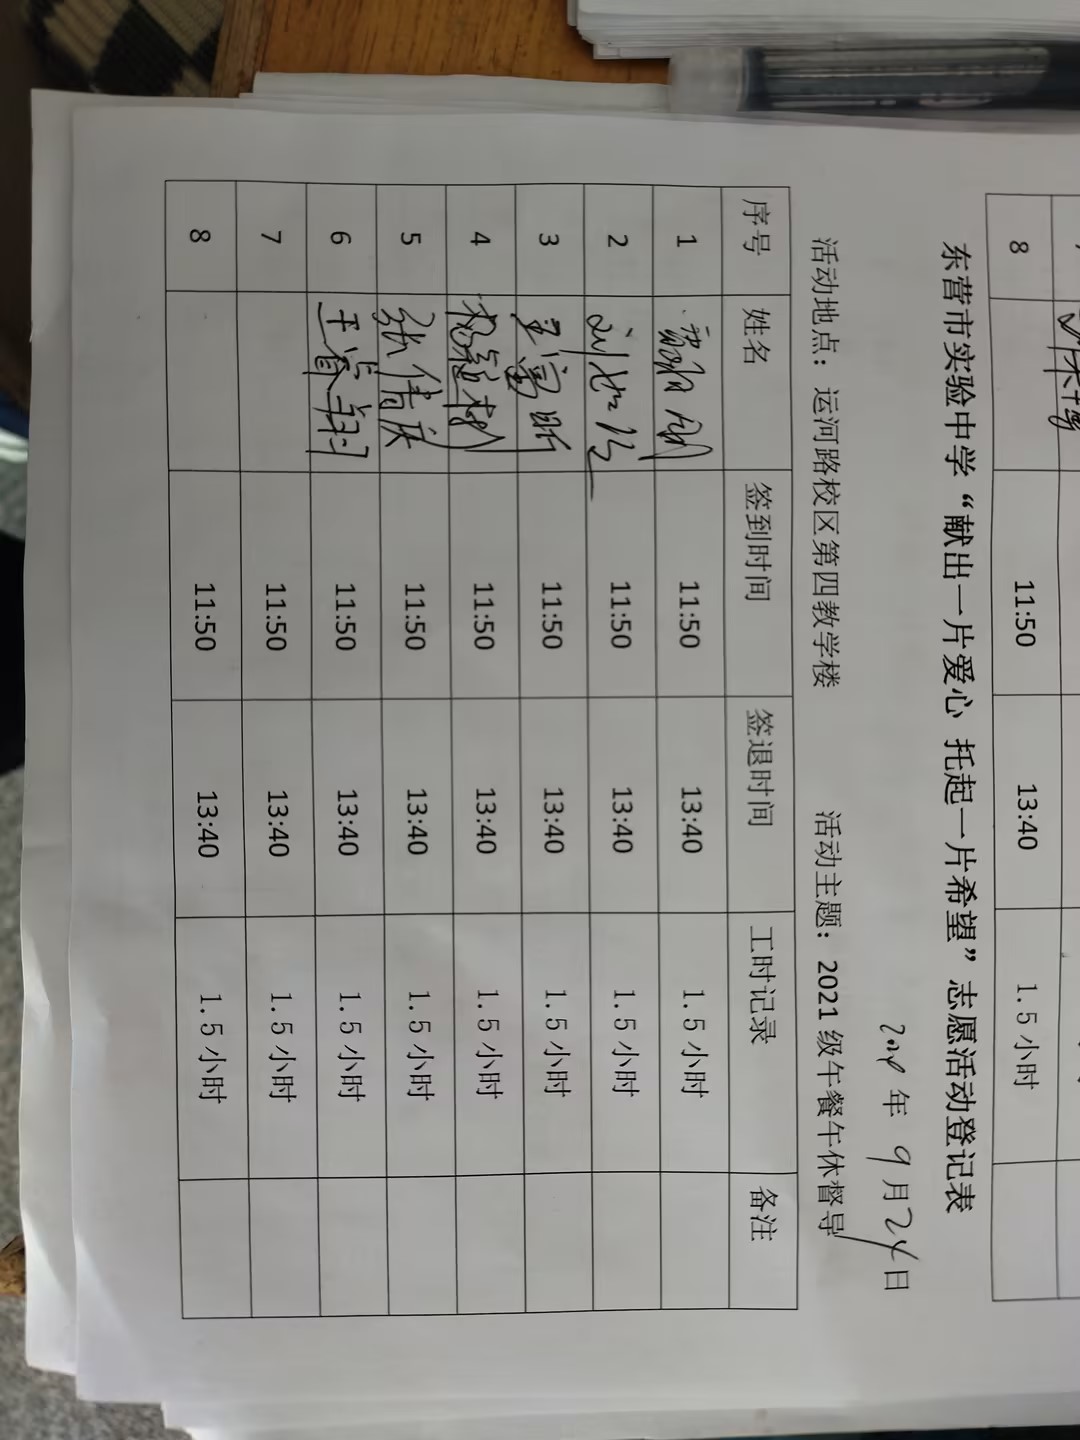 8 11:50 13:40 1.5小时
东营市实验中学“献出一片爱心 托起一片希望”志愿活动登记表
年 9月24日
活动地点：运河路校区第四教学楼 活动主题：2021级午餐午休督导
序号 姓名 签到时间 签退时间 工时记录 备注
1 11:50 13:40 1.5小时
2 11:50 13:40 1.5小时
3 11:50 13:40 1.5小时
4 11:50 13:40 1.5小时
5 张倩庆 11:50 13:40 1.5小时
6 王睿翔 11:50 13:40 1.5小时
7 11:50 13:40 1.5小时
8 11:50 13:40 1.5小时